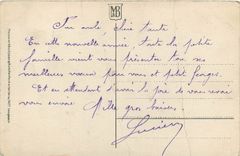 MD
Mon oncle, chère tante
En cette nouvelle année, toute la petite
famille vient vous présenter tous nos
meilleurs vœux pour vous et petit Georges.
Et en attendant d'avoir la joie de vous revoir
vous envoie Mille gros baisers.
Lucien